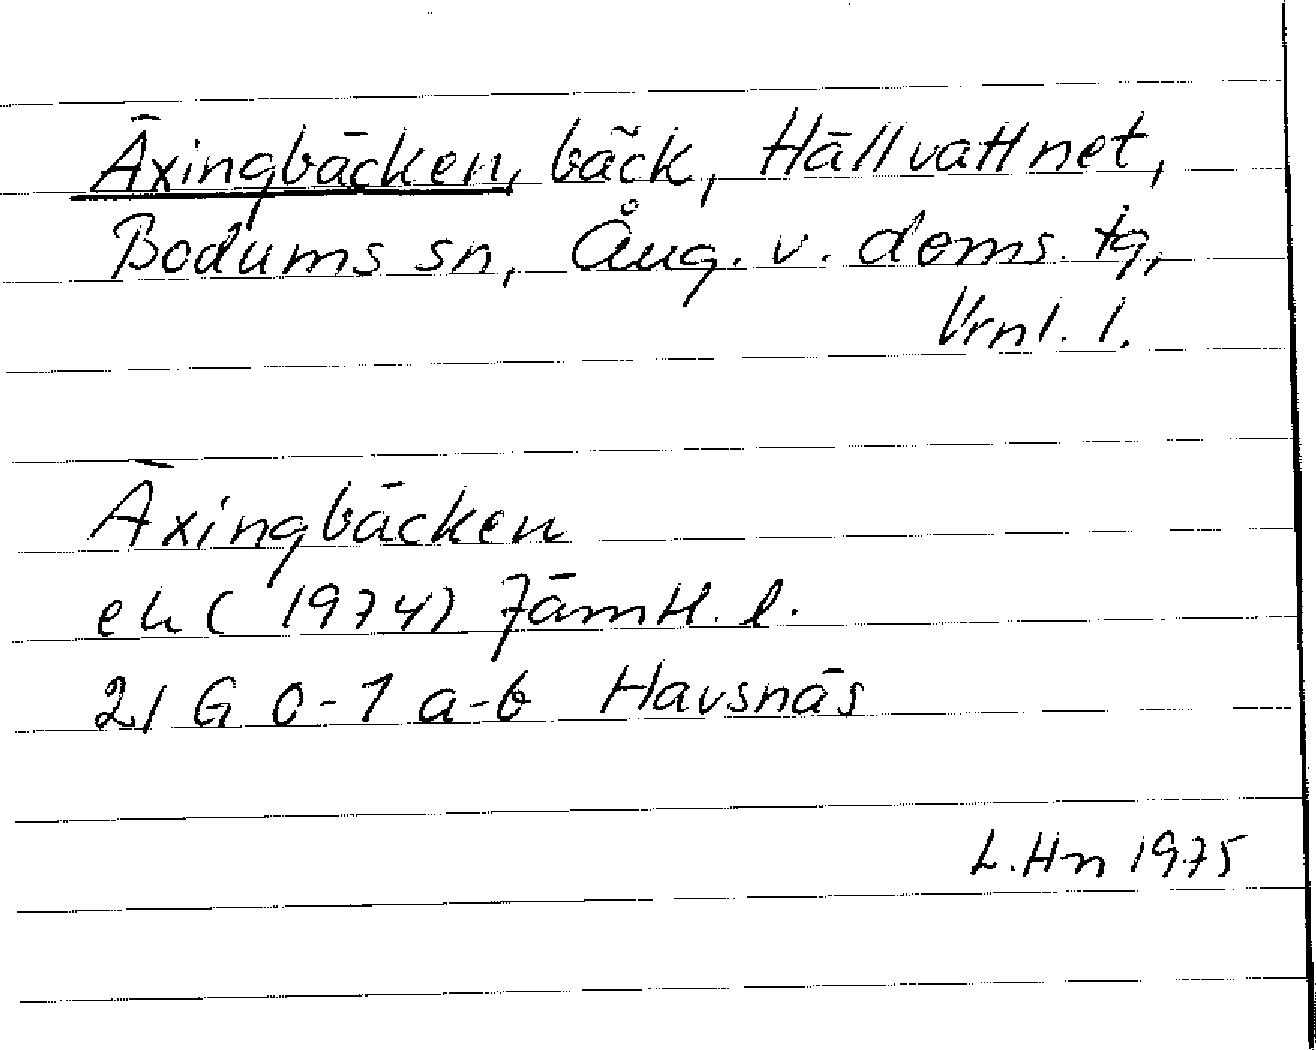 Äxingbäcken, bäck, Hällvattnet,
Bodums sn, Ång. v. doms. tg,
Vrnl. l.
Äxingbäcken
ek (1974) Jämtl. l.
21 G 0-1 a-b Havsnäs
L.Hn 1975